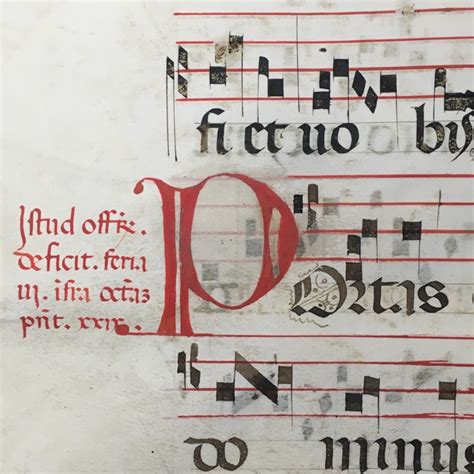 fi et uo biſ
Istud offi͞c.
deficit. feria
iij. i͞fra octa͞s
pn͞t. xxix.
POrtas
do minu